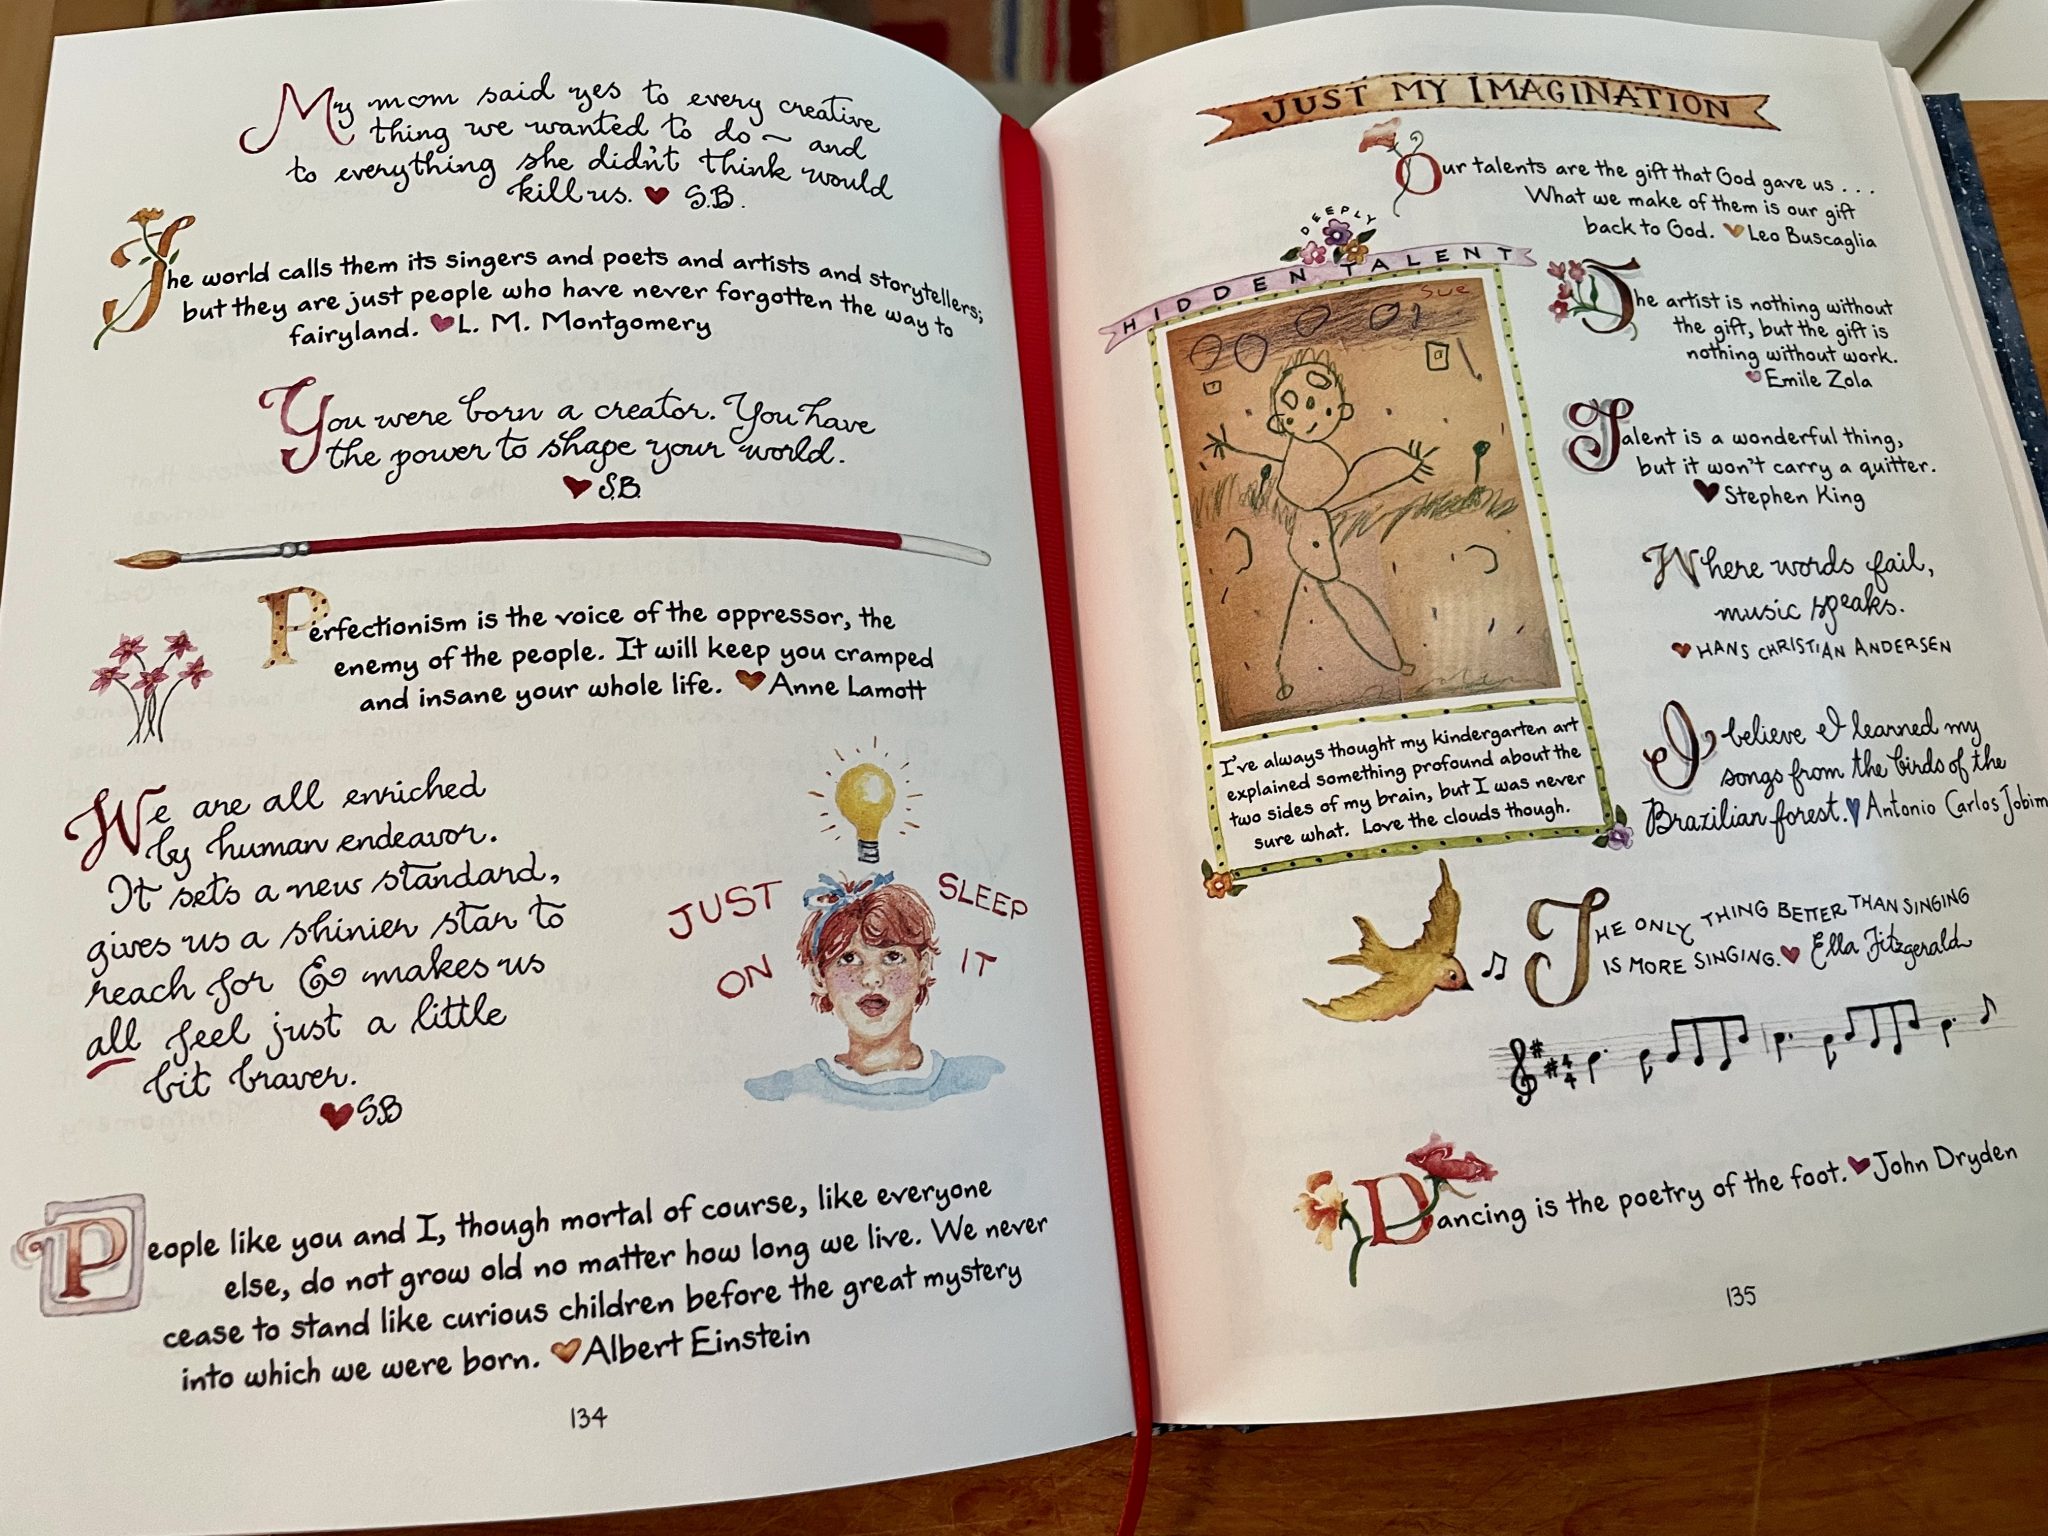 My mom said yes to every creative
thing we wanted to do ~ and
to everything she didn't think would
kill us. ♥ S.B.
The world calls them its singers and poets and artists and storytellers;
but they are just people who have never forgotten the way to
fairyland. ♥ L. M. Montgomery
You were born a creator. You have
the power to shape your world.
♥ S.B.
Perfectionism is the voice of the oppressor, the
enemy of the people. It will keep you cramped
and insane your whole life. ♥ Anne Lamott
We are all enriched
by human endeavor.
It sets a new standard,
gives us a shinier star to
reach for & makes us
all feel just a little
bit braver.
♥ S.B
JUST SLEEP
ON IT
People like you and I, though mortal of course, like everyone
else, do not grow old no matter how long we live. We never
cease to stand like curious children before the great mystery
into which we were born. ♥ Albert Einstein
134
JUST MY IMAGINATION
Our talents are the gift that God gave us . . .
What we make of them is our gift
back to God. ♥ Leo Buscaglia
DEEPLY
HIDDEN TALENT
Sue
I've always thought my kindergarten art
explained something profound about the
two sides of my brain, but I was never
sure what. Love the clouds though.
The artist is nothing without
the gift, but the gift is
nothing without work.
♥ Emile Zola
Talent is a wonderful thing,
but it won't carry a quitter.
♥ Stephen King
Where words fail,
music speaks.
♥ HANS CHRISTIAN ANDERSEN
I believe I learned my
songs from the birds of the
Brazilian forest. ♥ Antonio Carlos Jobim
THE ONLY THING BETTER THAN SINGING
IS MORE SINGING. ♥ Ella Fitzgerald
4
4
Dancing is the poetry of the foot. ♥ John Dryden
135